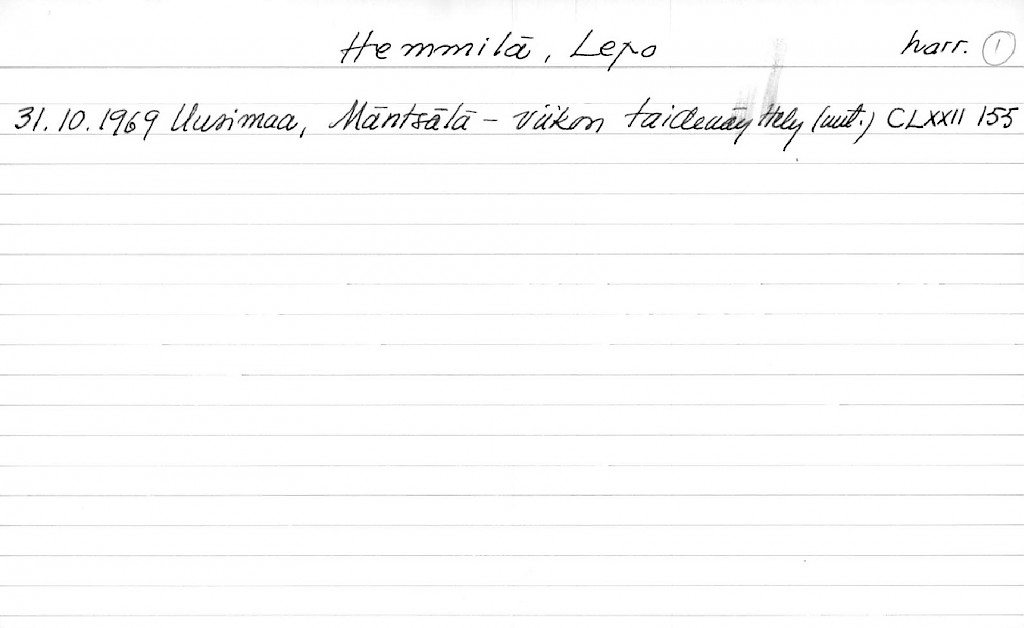 Hemmilä, Lepo harr. 1
31.10.1969 Uusimaa, Mäntsälä - viikon taidenäyttely (uut.) CLXXII 155